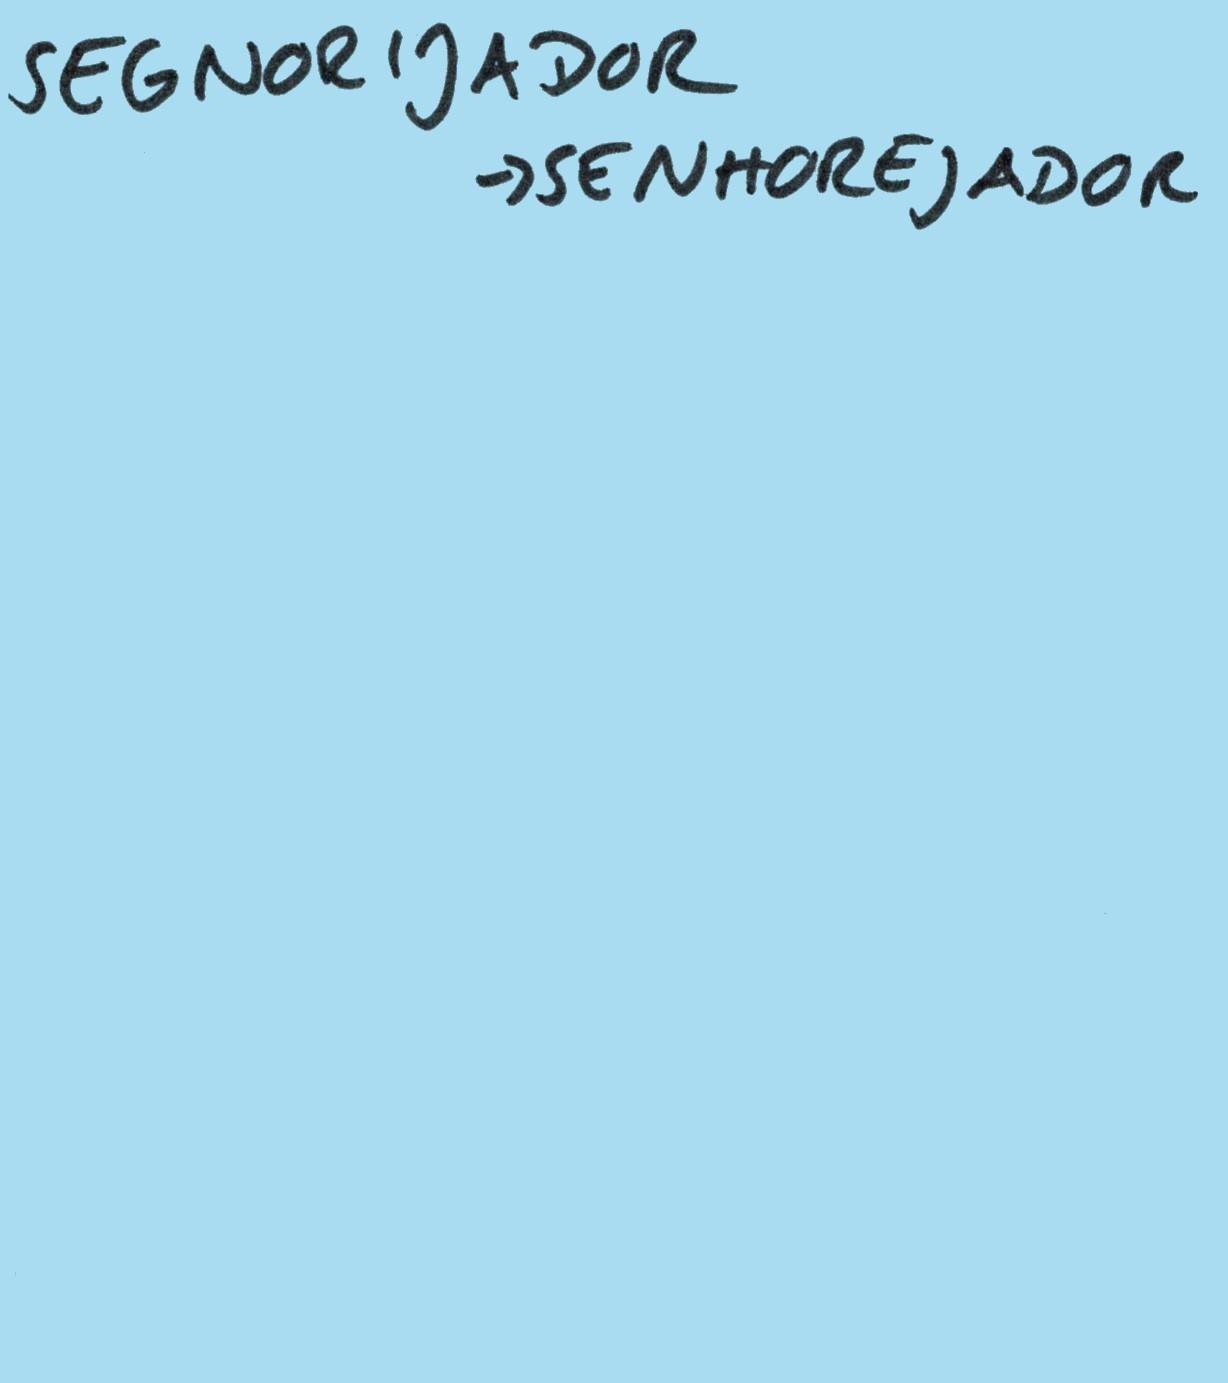 SEGNORIJADOR
→SENHOREJADOR